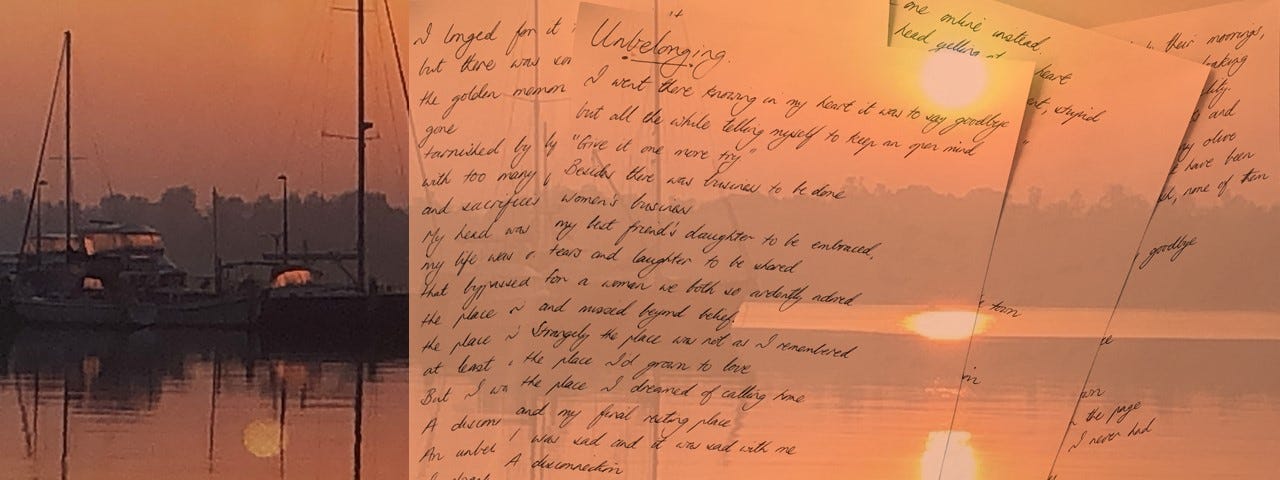 Unbelonging.
I went there knowing in my heart it was to say goodbye
but all the while telling myself to keep an open mind
"Give it one more try"
Besides there was business to be done
women's business
my best friend's daughter to be embraced,
tears and laughter to be shared
for a woman we both so ardently adored
and missed beyond belief.
Strangely the place was not as I remembered
the place I'd grown to love
the place I dreamed of calling home
and my final resting place
I was sad and it was sad with me
A disconnection
I longed for it
but there was
the golden
gone
tarnished by
with too many
and sacrifices
My head was
my life was
that bypassed
the place
the place
at least
But I
A
An
one online instead.
head
heart
stupid
torn
in
their moorings,
and
olive
have been
none of them
goodbye
the page
I never had